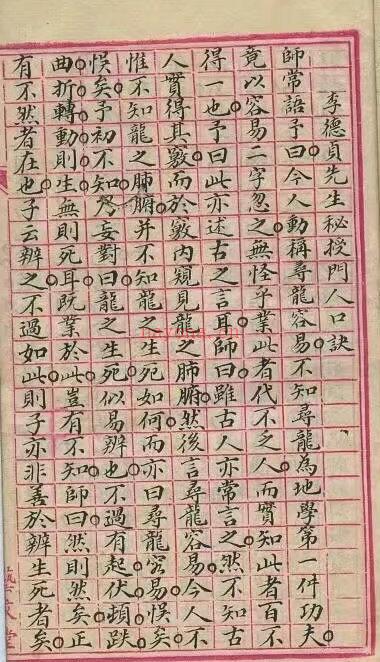 李德貞先生秘授門人口訣
師常語予曰。今人動稱尋龍容易。不知尋龍為地學第一件功夫。
竟以容易二字忽之。無怪乎業此者代不乏人。而實知此者百不
得一也。予曰。此亦述古之言耳。師曰。雖古人亦常言之。然不知古
人實得其竅。而於竅內窺見龍之肺腑。然後言尋龍容易。今人不
惟不知龍之肺腑。并不知龍之生死如何。而亦曰尋龍容易。悮人
悮矣。予初不知。妄對曰。龍之生死似易辨也。不過有起伏頓跌
曲折轉動則生。無則死耳。既業於此。豈有不知。師曰。然則然矣。正
有不然者在也。子云辨之不過如此。則子亦非善於辨生死者矣。